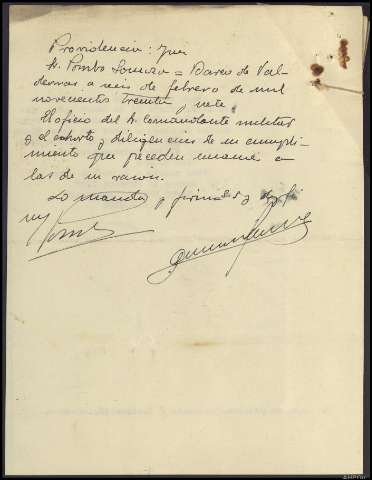 Providencia: Juez
Sr. Pombo Somoza = Barco de Val-
deorras a seis de febrero de mil
novecientos treinta y siete.
El oficio del Sr. Comandante militar
y el exhorto y diligencias de su cumpli-
miento que preceden unanse a
las de su razón.
Lo manda y firma S.S. doy fe
Pombo